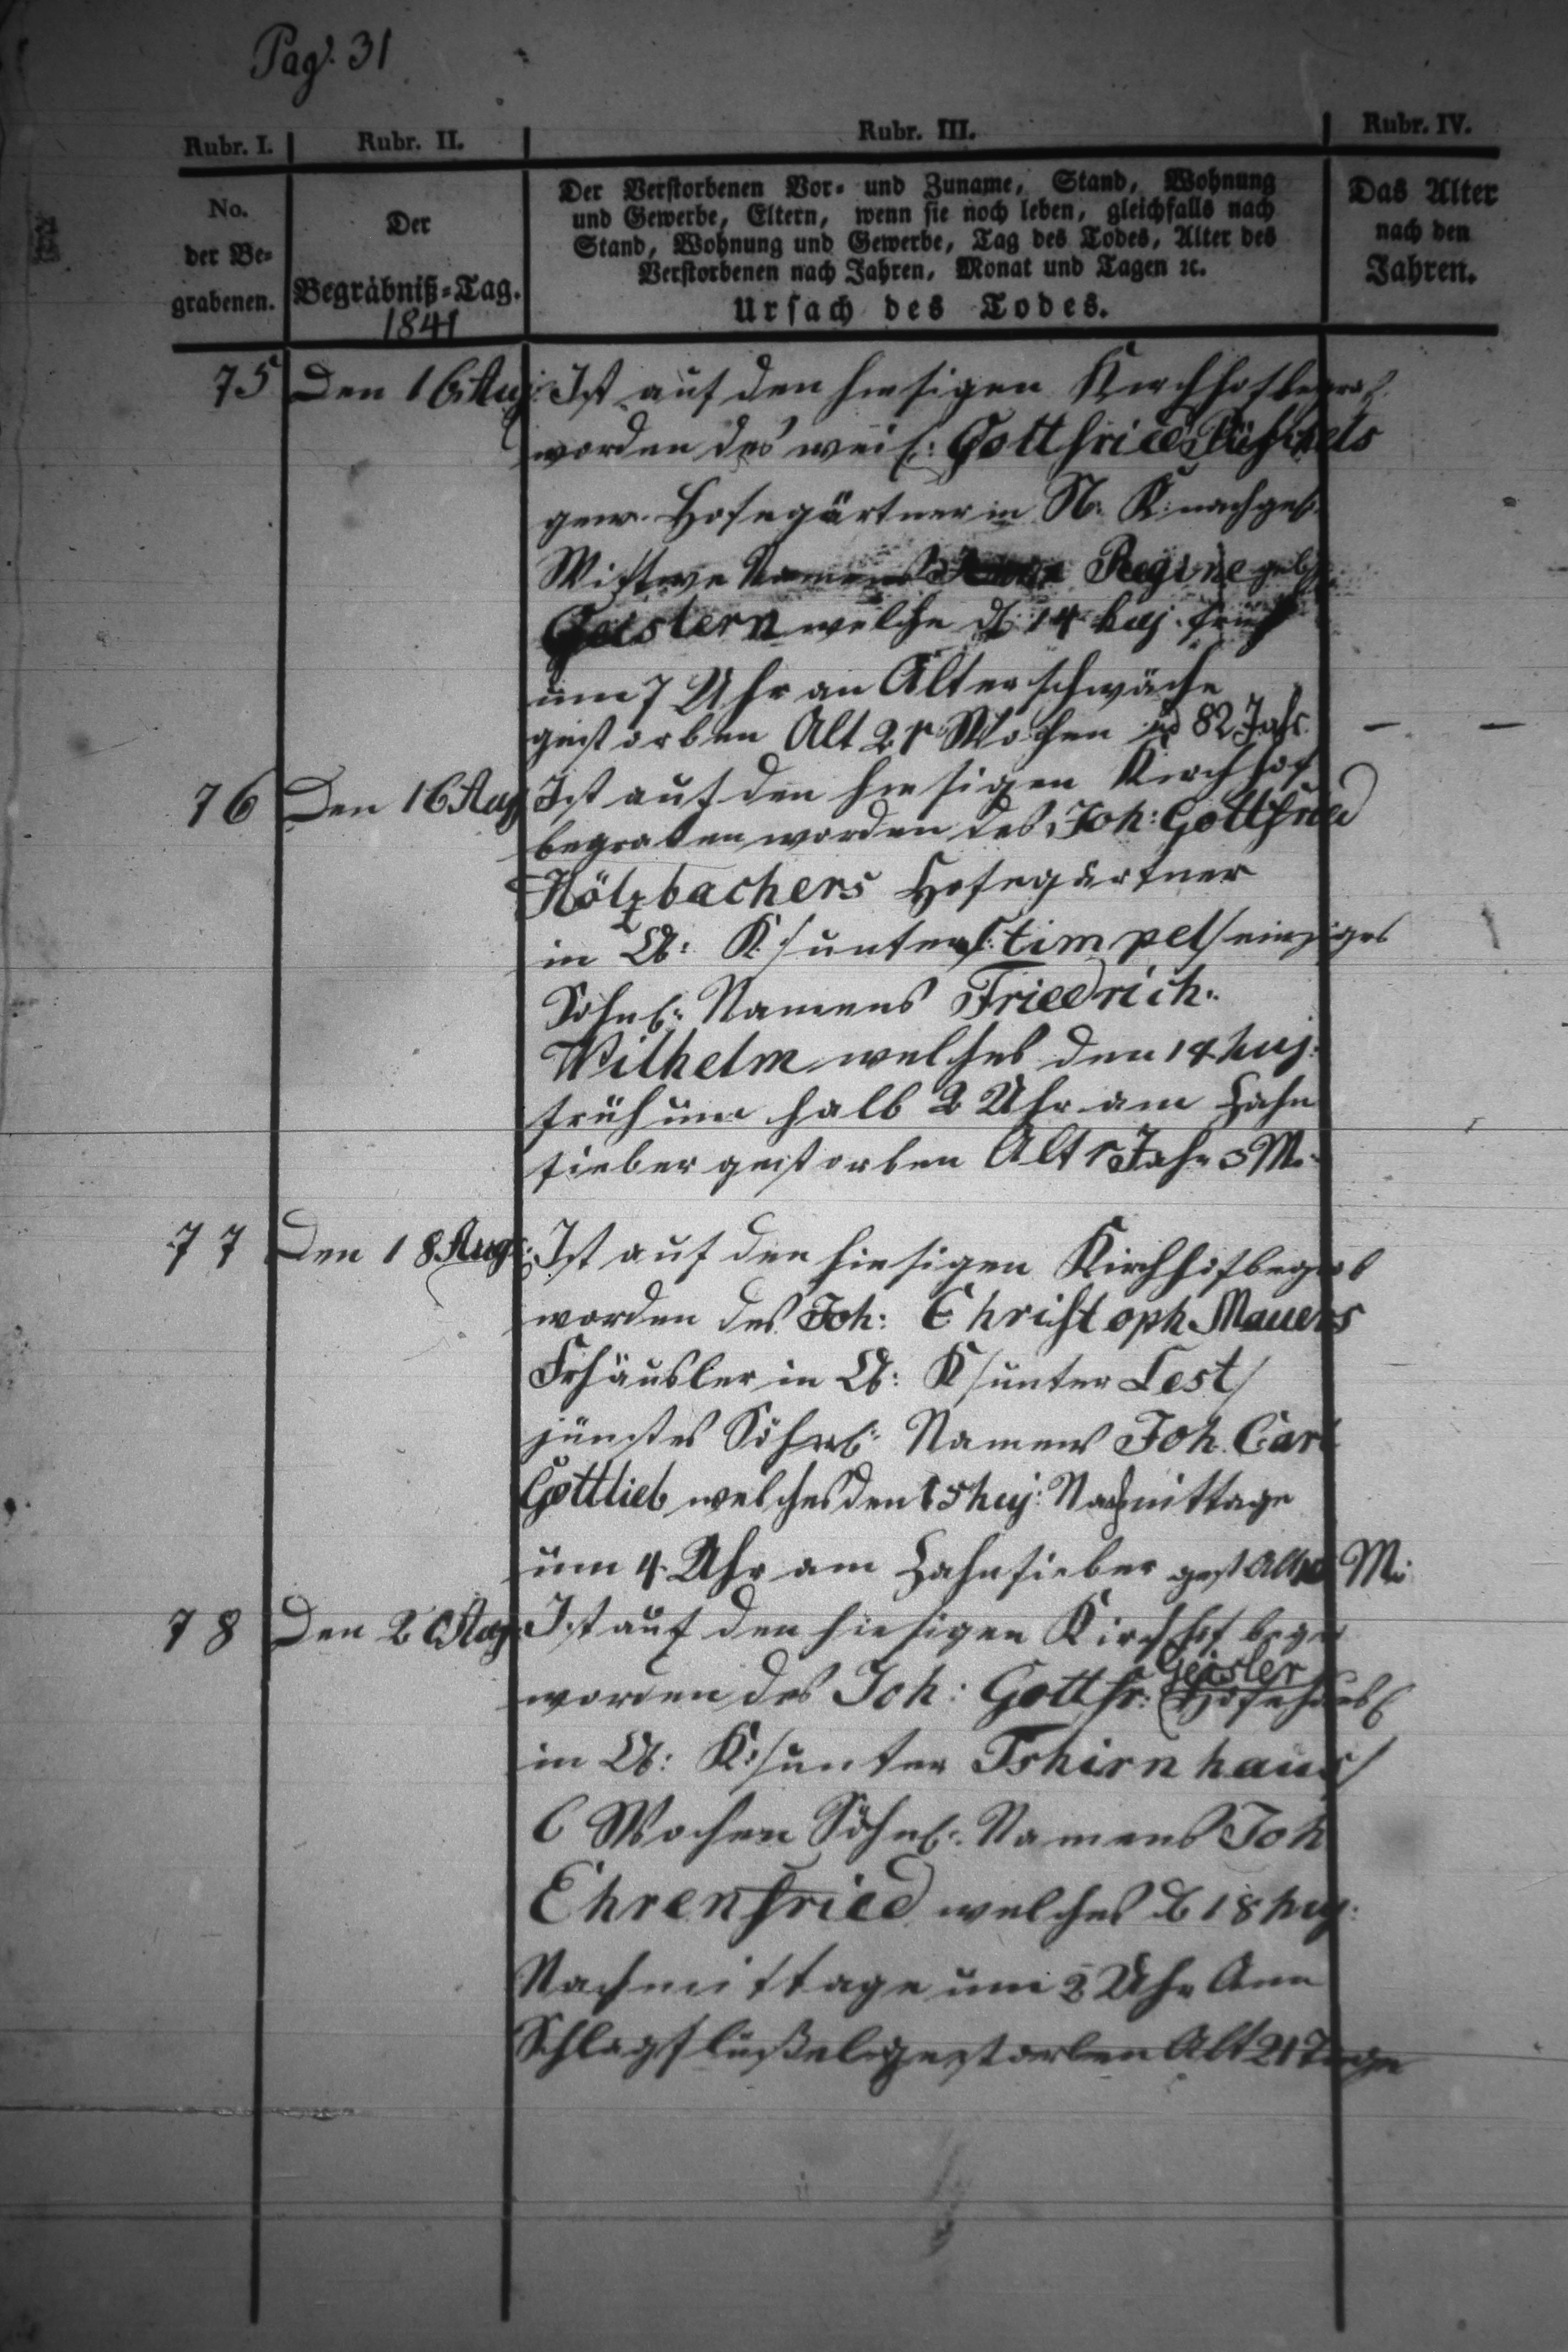 Pag. 31
Rubr. I. Rubr. II. Rubr. III. Rubr. IV.
No. der Be-grabenen.
Der Begräbniß-Tag.
1841
Der Verstorbenen Vor- und Zuname, Stand, Wohnung
und Gewerbe, Eltern, wenn sie noch leben, gleichfalls nach
Stand, Wohnung und Gewerbe, Tag des Todes, Alter des
Verstorbenen nach Jahren, Monat und Tagen ꝛc.
Ursach des Todes.
Das Alter
nach den
Jahren.
75 Den 16 Aug: Ist auf den hiesigen Kirchhof begrab
worden des weil: Gottfried
gew. Hofegärtner in N: K: nachgel.
Wittwe Namens Regine geb.
Geislern welche d. 14 huj. früh
um 7 Uhr an Alterschwäche
gestorben Alt Wochen 82 Jahr — —
76 Den 16 Aug Ist auf den hiesigen Kirchhof
begraben worden des Joh: Gottfried
Hölzbachers Hofegärtner
in K:/unter Stimpel/einziges
Söhnl: Namens Friedrich
Wilhelm welches den 14 huj:
früh um halb 2 Uhr am Zahn
fieber gestorben Alt 1 Jahr 3 M:
77 Den 18 Aug: Ist auf den hiesigen Kirchhof begrab
worden des Joh: Christoph Mauers
Frhäusler in K/unter Lest/
jüngstes Söhnl: Namens Joh. Carl
Gottlieb welches den 15 huj: Nachmittage
um 4 Uhr am Zahnfieber gest Alt M:
78 Den 20 Aug: Ist auf den hiesigen Kirchhof begr
worden des Joh: Gottfr: Geisler Hofehäusl
in K:/unter Tshirnhaus/
6 Wochen Söhnl: Namens Joh
Ehrenfried welches d 18 huj:
Nachmittage um 2 Uhr Am
Schlagflüßel gestorben Alt 21 Tage